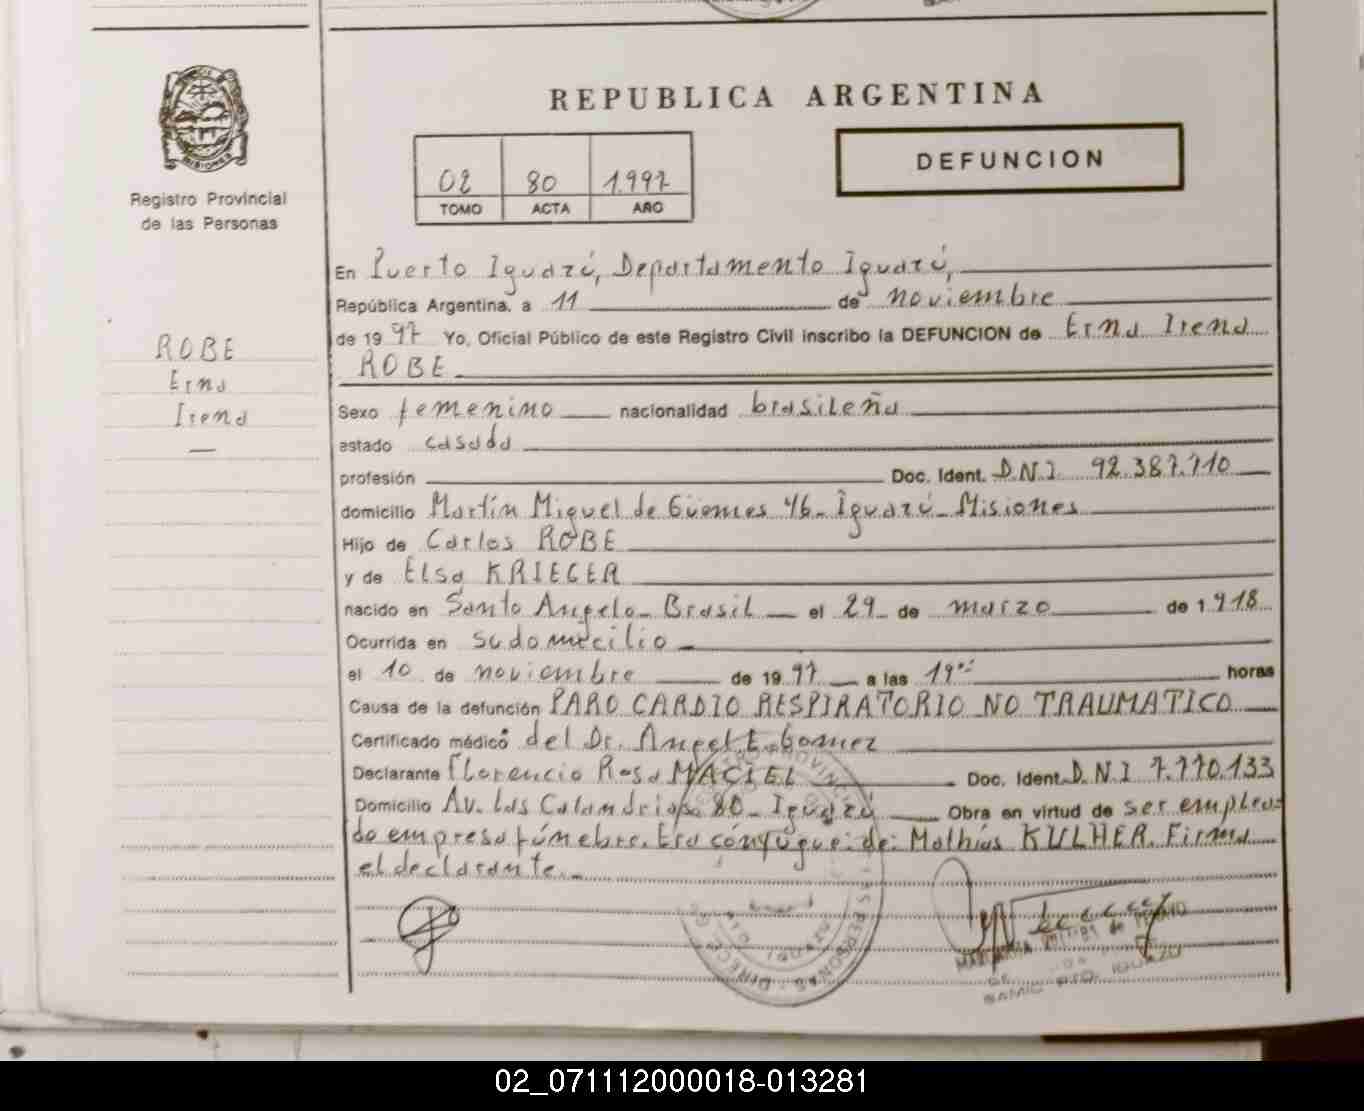 REPUBLICA ARGENTINA
DEFUNCION
02 80 1.997
TOMO ACTA AÑO
MISIONES
Registro Provincial
de las Personas
ROBE
Erna
Irena
—
En Puerto Iguazú, Departamento Iguazú,
República Argentina, a 11 de noviembre
de 1997 Yo, Oficial Público de este Registro Civil inscribo la DEFUNCION de Erna Irena
ROBE
Sexo femenino nacionalidad brasileña
estado casada
profesión Doc. Ident. D.N.I. 92.387.710
domicilio Martín Miguel de Güemes 46- Iguazú- Misiones
Hijo de Carlos ROBE
y de Elsa KRIEGER
nacido en Santo Angelo- Brasil el 29 de marzo de 1918
Ocurrida en su domicilio
el 10 de noviembre de 1997 a las 19 horas
Causa de la defunción PARO CARDIO RESPIRATORIO NO TRAUMATICO
Certificado médico del Dr. Angel E. Gomez
Declarante Florencio Rosa MACIEL Doc. Ident. D.N.I 7.770.133
Domicilio Av. Las Calandrias 80- Iguazú Obra en virtud de ser emplea=
do empresa fúnebre. Era cónyugue: de: Mathías KULHER. Firma
el declarante.-
PTO. IGUAZU
02_071112000018-013281